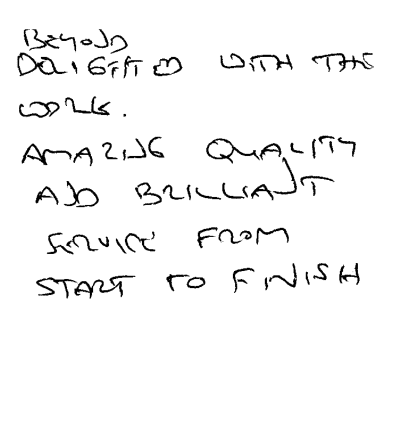 BEYOND
DELIGHTED WITH THE
WORK.
AMAZING QUALITY
AND BRILLIANT
SERVICE FROM
START TO FINISH